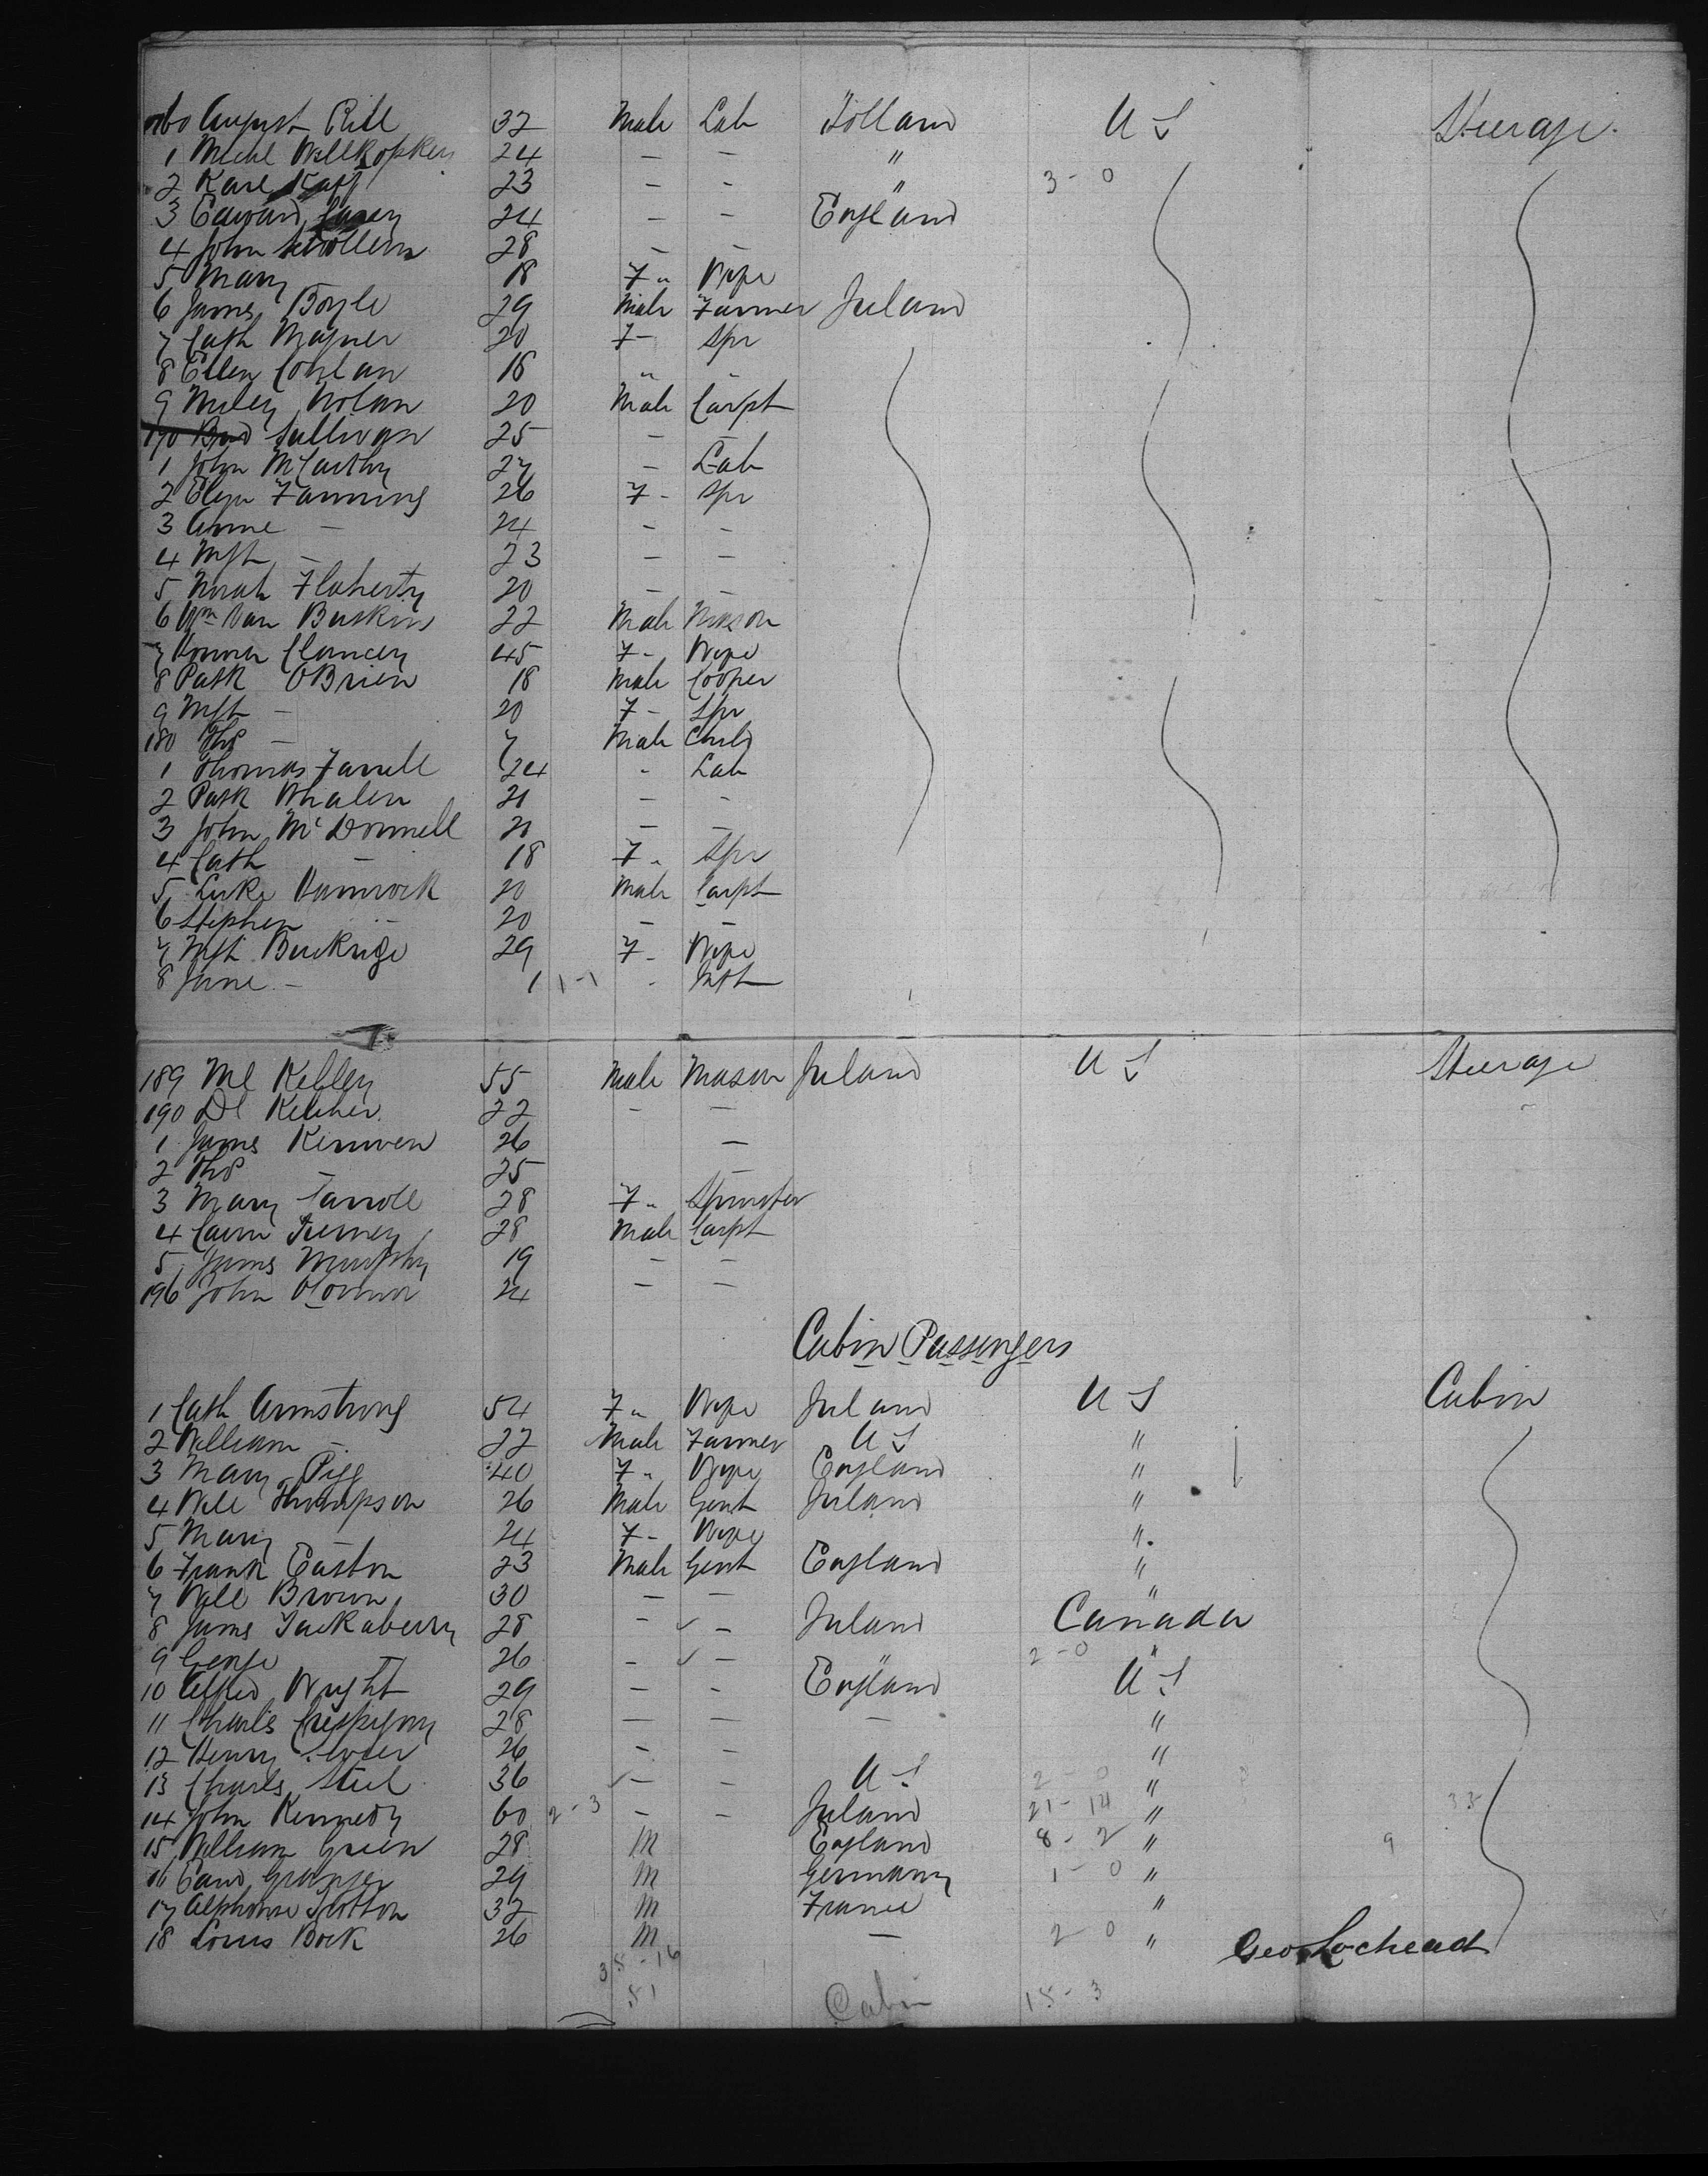 160 August Rill 32 Male Lab Holland U S Steerage.
1 Michl Wellkopken 24 — — "
2 Karl Kapp 23 — - " 3 - 0
3 Edward Carey 24 — - England
4 John 28 — —
5 Mary 18 F " Wife
6 James Boyle 29 Male Farmer Ireland
7 Cath Magner 20 F - Spr
8 Ellen Conlan 18 " -
9 Miley Nolan 20 Male Carpt
170 Brd Sullivan 25 — —
1 John McCarthy 27 — Lab
2 Eliza Fanning 26 F - Spr
3 Anne — 24 — -
4 Mgt — 23 — —
5 Norah Flaherty 20 — —
6 Wm Van Buskirs 22 Male Mason
7 Honnor Clancey 45 F - Wife
8 Patk OBrien 18 Male Cooper
9 Mgt — 20 F - Spr
180 Ths — 7 Male Child
1 Thomas Farrell 24 - Lab
2 Patk Whalen 21 — -
3 John McDonnell 21 — —
4 Cath — 18 F " Spr
5 Luke Hamrock 20 Male Carpt
6 Stephen — 20 — —
7 Mgt Buckrige 29 F - Wife
8 Jane — 1 1 - 1 - Inft
189 Ml Kelley 55 Male Mason Ireland U S Steerage
190 Dl Keliher 22 - —
1 James Kirwen 26 —
2 Ths — 25 —
3 Mary Carroll 28 F " Spinster
4 Tierney 28 Male Carpt
5 James Murphy 19 — —
196 John OConnor 24 — —
Cabin Passengers
1 Cath Armstrong 54 F " Wife Ireland U S Cabin
2 William — 22 Male Farmer U S "
3 Mary Pigg 40 F " Wife England "
4 Will Thompson 26 Male Gent Ireland "
5 Mary — 24 F - Wife "
6 Frank Easton 23 Male Gent England "
7 Will Brown 30 — — "
8 James Tackaberry 28 - ✓ - Ireland Canada
9 George — 26 - ✓ — " 2 - 0 "
10 Alfred Wright 29 — - England U S
11 Charles Crespigny 28 — — — "
12 Henry 26 - — "
13 Charles Steel 36 ✓ — - U S 2 - 0 "
14 John Kennedy 60 2 - 3 — - Ireland 21 - 14 " 35
15 William Green 28 M England 8 - 2 " 9
16 Edwd Granger 29 M Germany 1 - 0 "
17 Alphonse 32 M France "
18 Louis Bock 26 M — 2 - 0 " Geo Lochead
35 - 16
51 Cabin 15 - 3